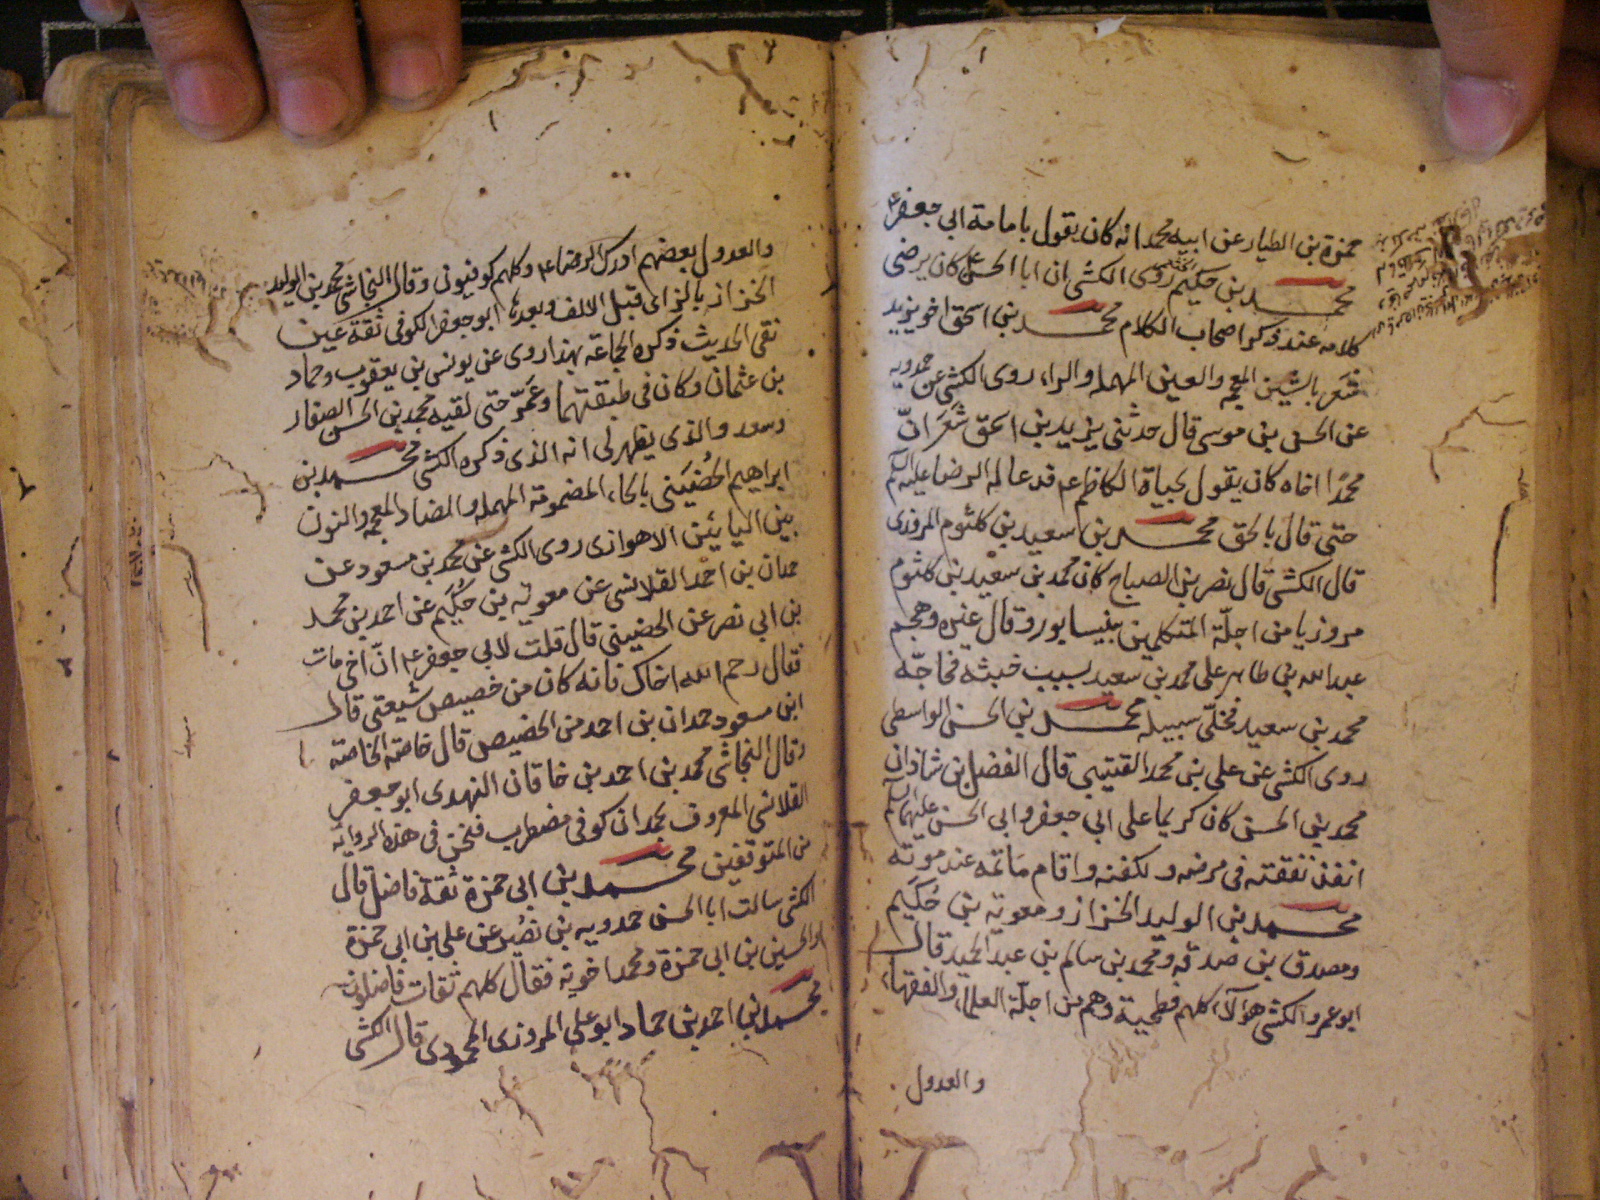 حمزة بن الطيار عن ابيه محمد انه كان يقول بامامة ابي جعفر ع
محمد بن حكيم روى الكشى ان ابا الحسن ع كان يرضى
كلامه عند ذكر اصحاب الكلام محمد بن اسحق اخو يزيد
شَعَر بالشين المعجمه والعين المهمله والراء روى الكشى عن حمدويه
عن الحسن بن موسى قال حدثنى يزيد بن اسحق شَعَر انّ
محمدًا اخاه كان يقول بحياة الكاظم ع فدعا له الرضا عليه السلم
حتى قال بالحق محمد بن سعيد بن كلثوم المروزى
قال الكشى قال نصر بن الصباح كان محمد بن سعيد بن كلثوم
مروزيا من اجلّة المتكلمين بنيسابور وقال غيره وهجم
عبد الله بن طاهر على محمد بن سعيد بسبب خبثه فحاجّه
محمد بن سعيد فخلّى سبيله محمد بن الحسن الواسطى
روى الكشى عن على بن محمد القتيبى قال الفضل بن شاذان
محمد بن الحسن كان كريما على ابى جعفر وابى الحسن عليهما السلم
انفذ نفقته فى مرضه ولكفنه واقام مَاتمه عند موته
محمد بن الوليد الخزاز ومعوية بن حُكَيم
ومصدق بن صدقه ومحمد بن سالم بن عبد الحميد قال
ابو عمرو الكشى هوآلاء كلهم فطحية وهم من اجلّة العلماء والفقهاء
والعدول
والعدول بعضهم ادرك الرضا ع وكلهم كوفيون وقال النجاشى محمد بن الوليد
الخزاز بالزاى قبل الالف وبعدها ابو جعفر الكوفى ثقة عين
نقى الحديث ذكره الجماعه بهذا روى عن يونس بن يعقوب وحماد
بن عثمان وكان فى طبقتهما وعَمّر حتى لقيه محمد بن الحسن الصفار
وسعد والذى يظهر لى انه الذى ذكره الكشى محمد بن
ابراهيم الحُضَيَنى بالحاء المضمومة المهمله والضاد المعجمه والنون
بين اليائين الاهوازى روى الكشى عن محمد بن مسعود عن
حمدان بن احمد القلانسى عن معويه بن حُكَيم عن احمد بن محمد
بن ابى نصر عن الحضينى قال قلت لابى جعفر ع انّ اخى مات
فقال رحم الله اخاك فانه كان من خصيص شيعتى قال
ابن مسعود حمدان بن احمد من الخصيص قال خاصة الخاصة
وقال النجاشى محمد بن احمد بن خاقان النهدى ابو جعفر
القلانسى المعروف بحمدان كوفى مضطرب فنحن فى هذه الرواية
من المتوقفين محمد بن ابى حمزة ثقة فاضل قال
الكشى سالت ابا الحسن حمدويه بن نُصَير عن على بن ابى حمزة
والحسين بن ابى حمزة ومحمد اخويه فقال كلهم ثقات فاضلون
محمد بن احمد بن حماد ابو على المروزى المحمودى قال الكشى